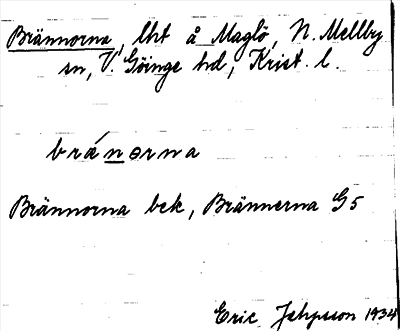 Brännorna, lht å Maglö, N. Mellby
sn, V. Göinge hd, Krist. l.
brǽnorna
Brännorna bek, Brännerna G5
Eric Jepsson 1934